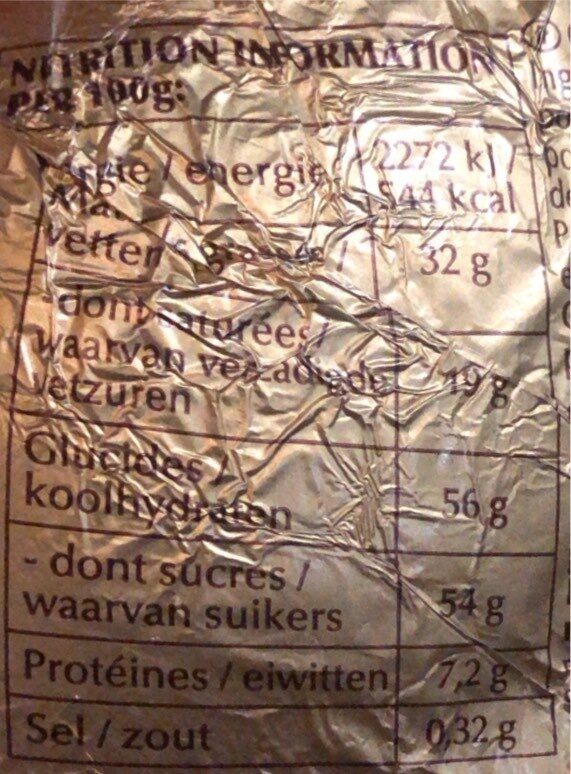 NUTRITION INFORMATION
PER 100g:
energie 2272 kJ /
544 kcal
vetten 32 g
- dont saturées /
waarvan verzadigde 19 g
vetzuren
Glucides /
koolhydraten 56 g
- dont sucres /
waarvan suikers 54 g
Protéines / eiwitten 7,2 g
Sel / zout 0,32 g